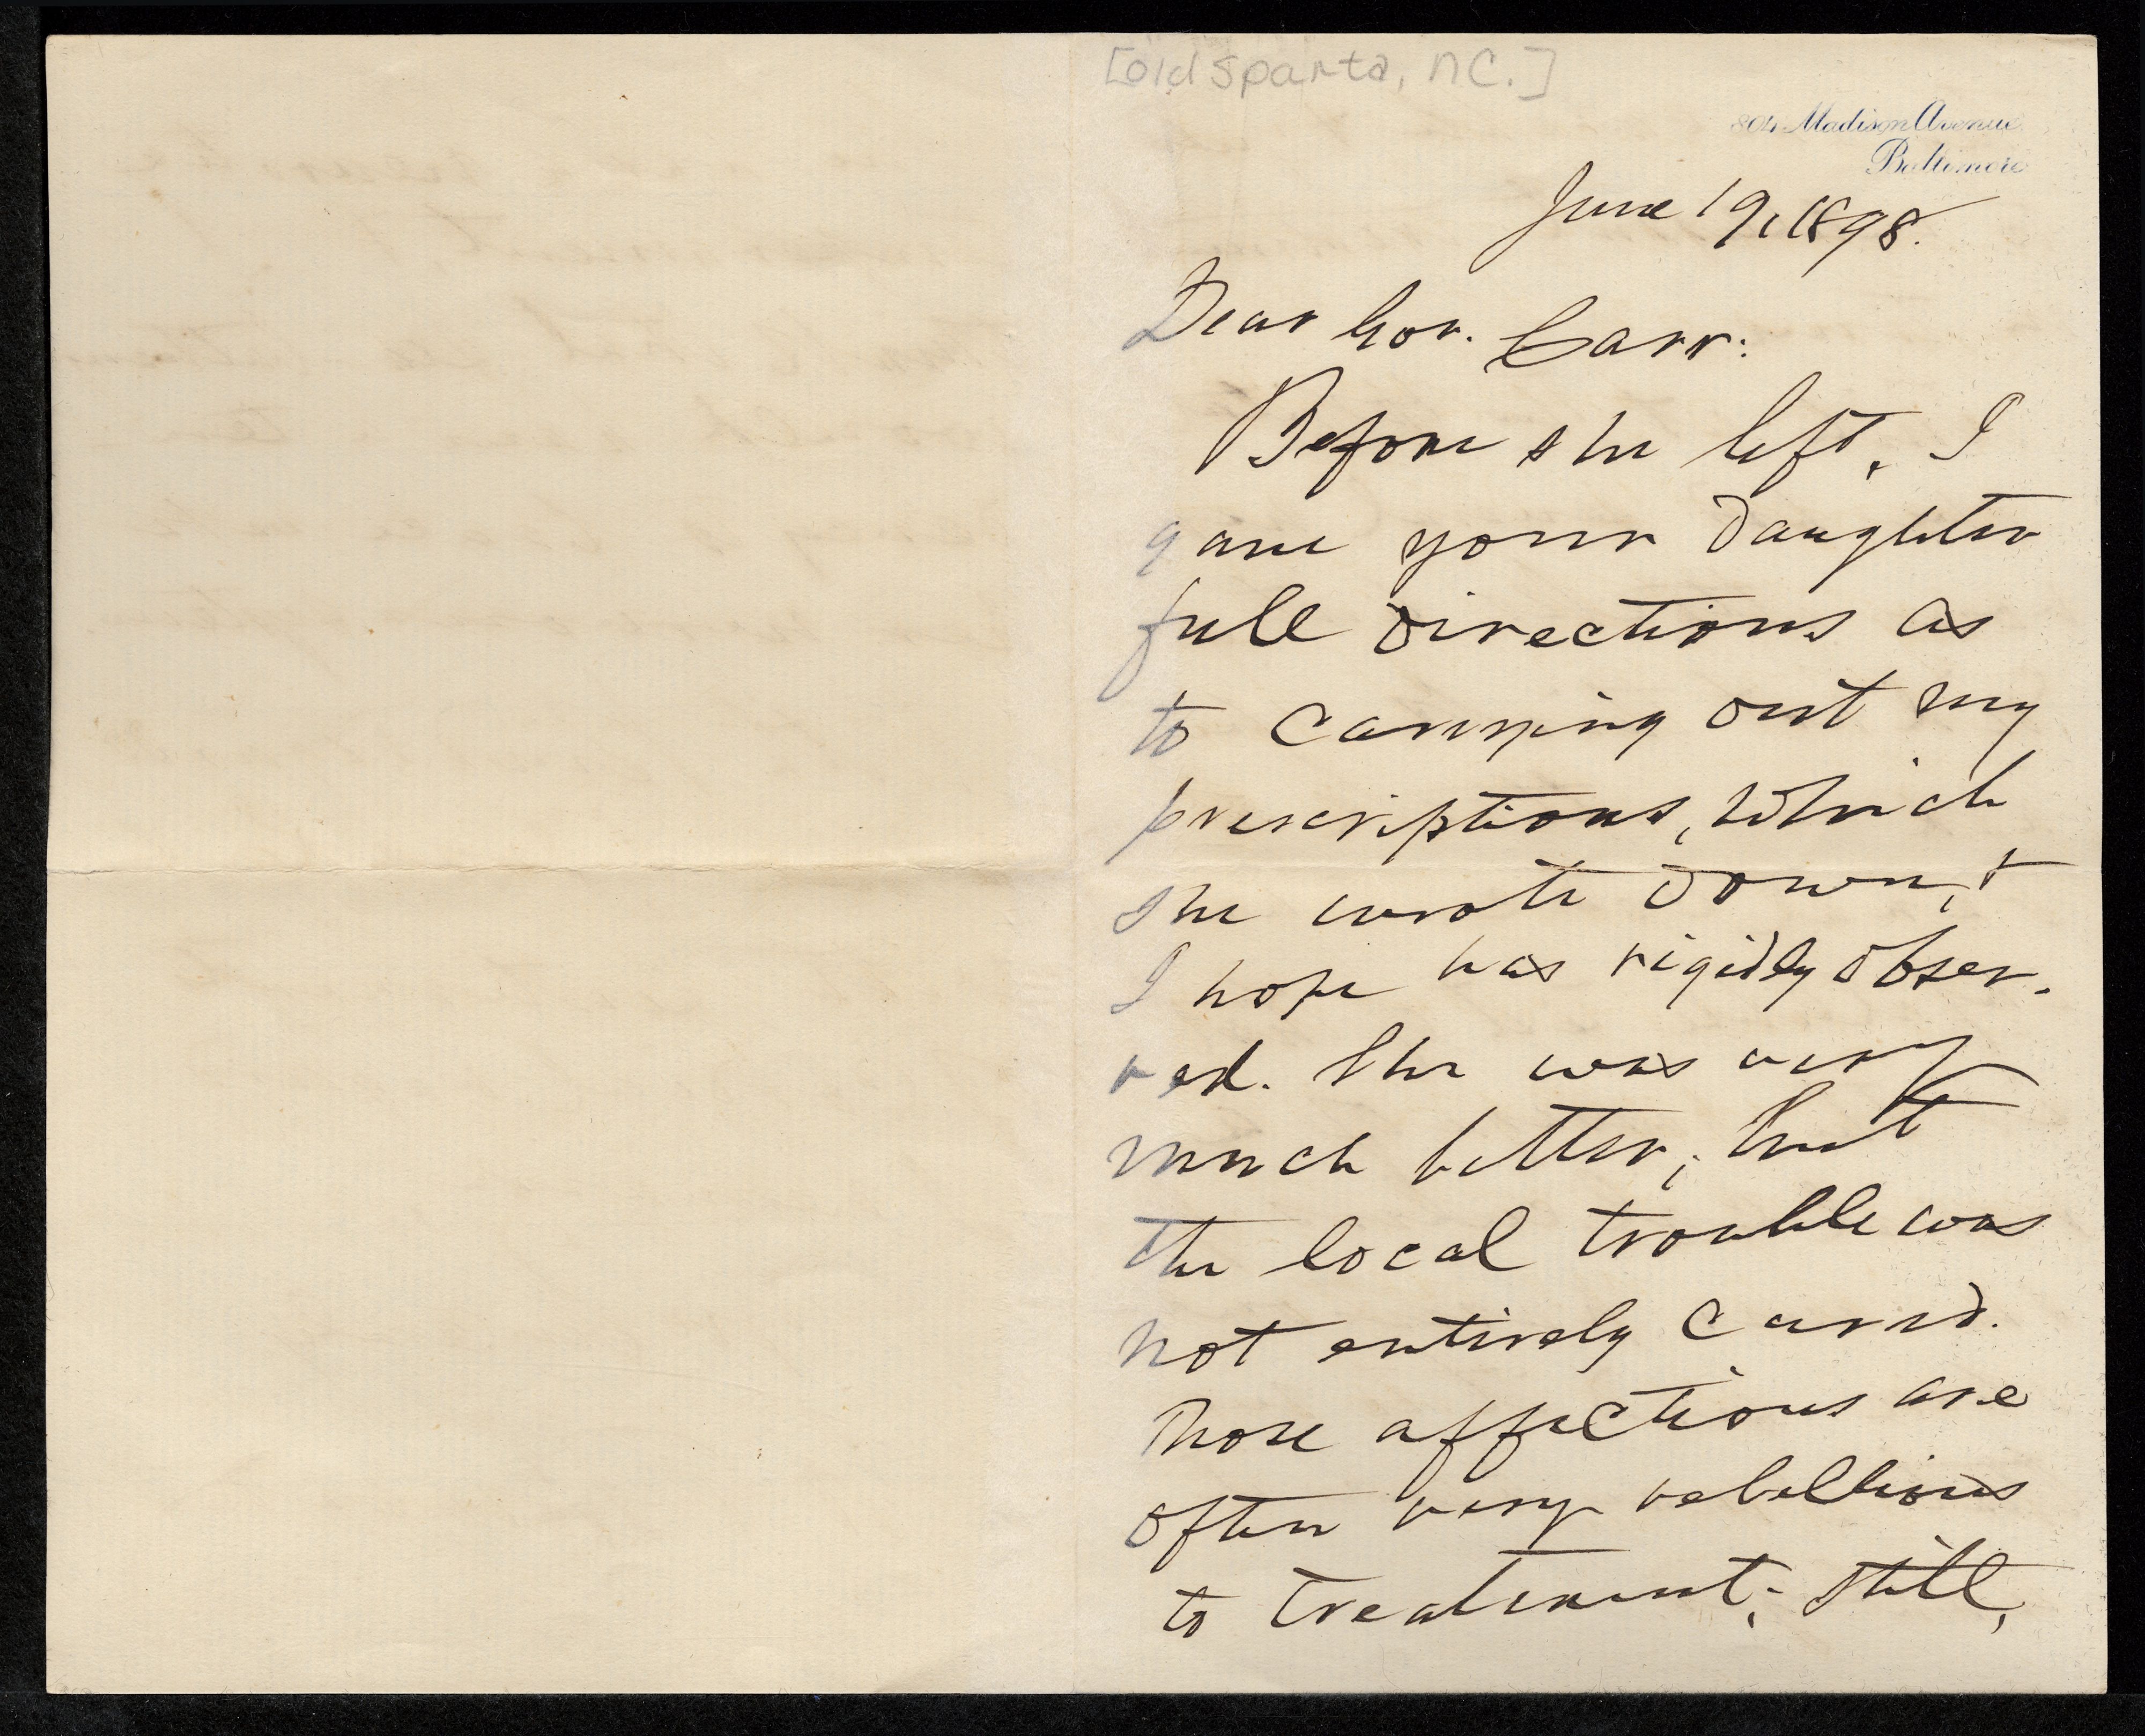 [Old Sparta, NC.]
804 Madison Avenue
Baltimore
June 19, 1898.
Dear Gov. Carr:
Before she left, I
gave your daughter
full directions as
to carrying out my
prescriptions, which
she wrote down, &
I hope has rigidly obser-
ved. She was very
much better; but
the local trouble was
not entirely cured.
Those affections are
often very rebellious
to treatment; still,